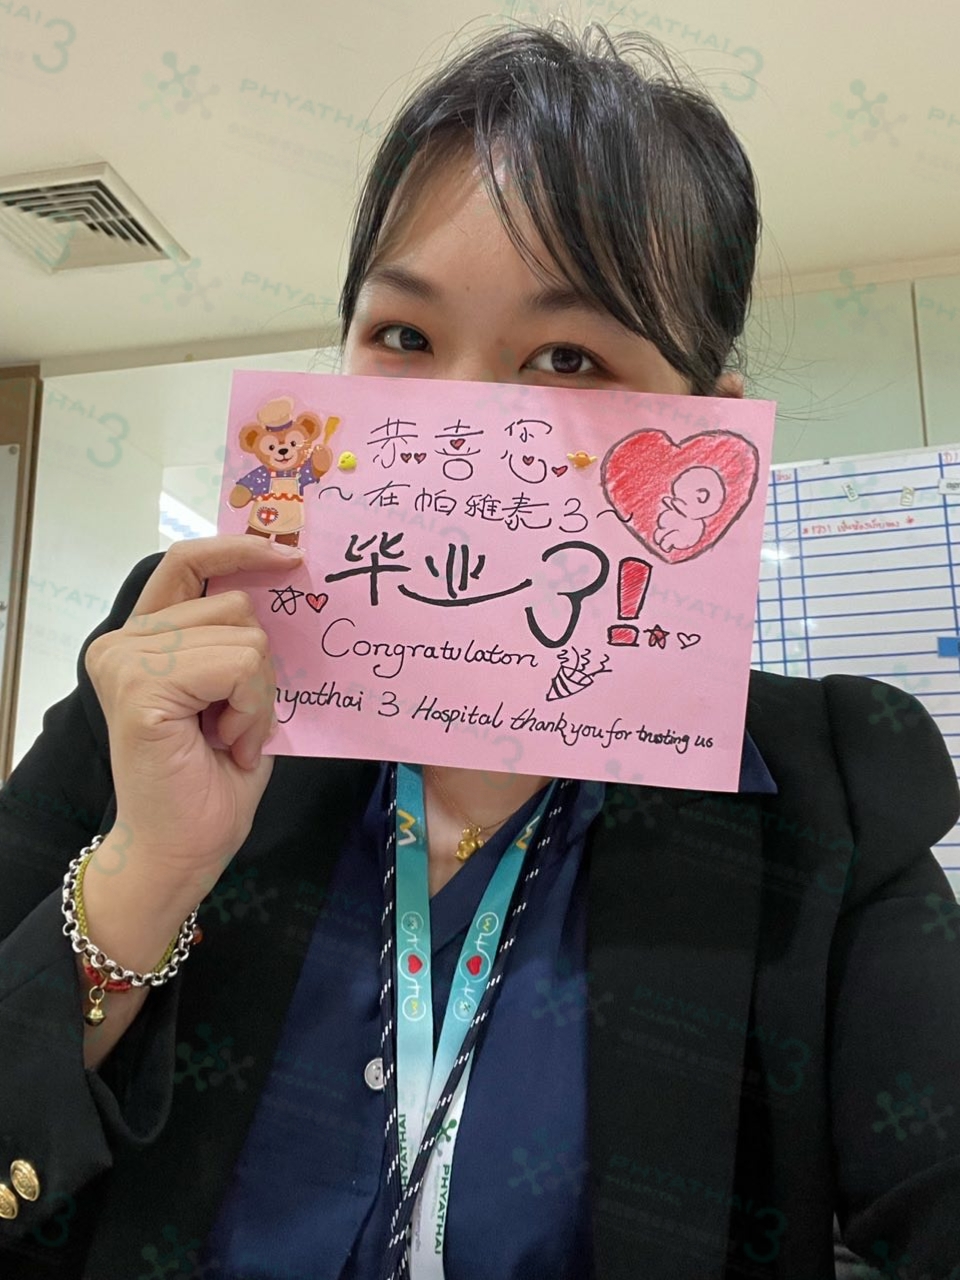 恭喜您
～在帕雅泰3～
毕业了!
Congratulaton
hyathai 3 Hospital thank you for trusting us
PHYATHAI
PHYATHAI
PHYATHAI 3